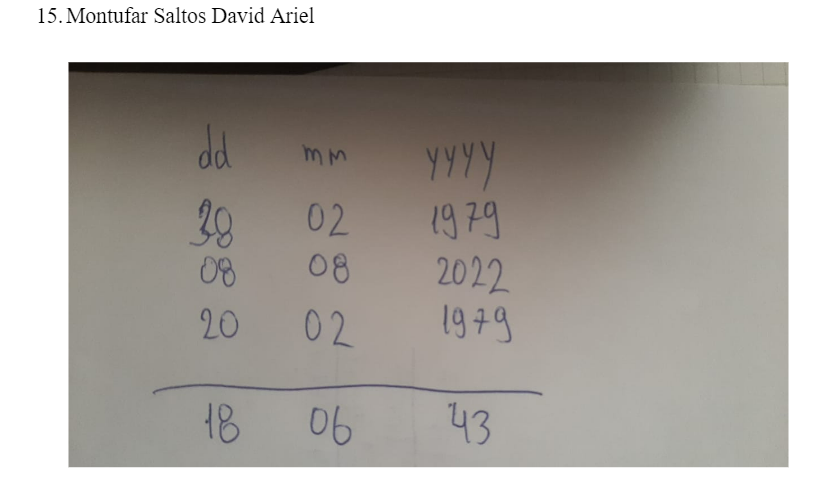 15. Montufar Saltos David Ariel
dd mm yyyy
02 1979
08 08 2022
20 02 1979
18 06 43